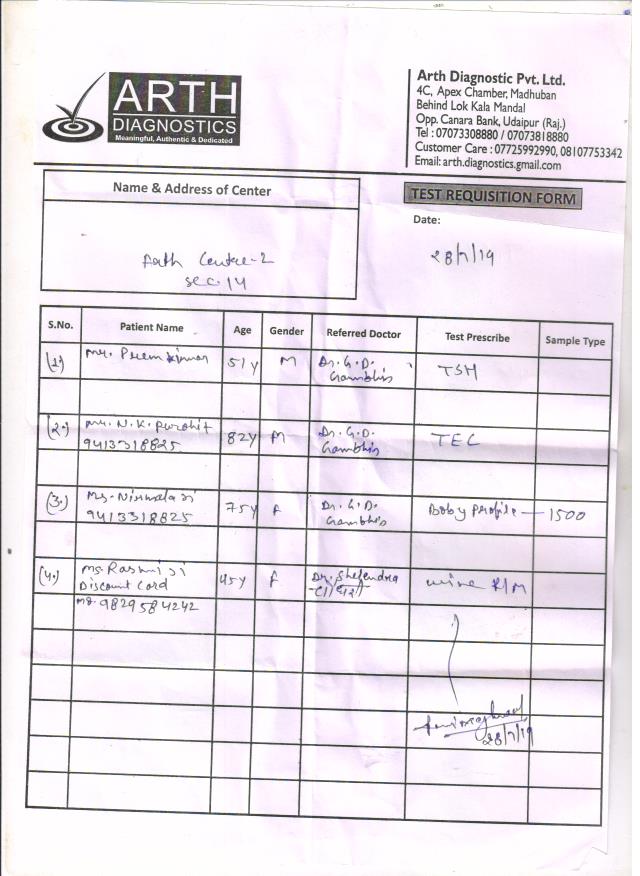 ARTH
DIAGNOSTICS
Meaningful, Authentic & Dedicated
Arth Diagnostic Pvt. Ltd.
4C, Apex Chamber, Madhuban
Behind Lok Kala Mandal
Opp. Canara Bank, Udaipur (Raj.)
Tel : 07073308880 / 07073818880
Customer Care : 07725992990, 08107753342
Email: arth.diagnostics.gmail.com
Name & Address of Center
Arth Centre-2
Sec. 14
TEST REQUISITION FORM
Date:
28/7/19
S.No. Patient Name Age Gender Referred Doctor Test Prescribe Sample Type
(1) Mr. Prem Kumar 51y M Dr. G.D. TSH
(2.) Mr. N.K. Purohit 82y M Dr. G.D. TEC
9413318825
(3.) Ms. Nirmala Ji 75y F Dr. G.D. Boby Profile — 1500
9413318825
(4.) Ms. Rashmi Ji 45y F Dr. Urine R/M
Discount Card
Mo. 9829584242
28/7/19